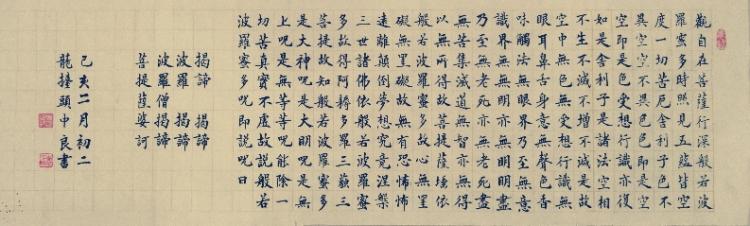 觀自在菩薩行深般若波
羅蜜多時照見五蘊皆空
度一切苦厄舍利子色不
異空空不異色色即是空
空即是色受想行識亦復
如是舍利子是諸法空相
不生不滅不增不減是故
空中無色無受想行識無
眼耳鼻舌身意無聲色香
味觸法無眼界乃至無意
識界無無明亦無無明盡
乃至無老死亦無老死盡
無苦集滅道無智亦無得
以無所得故菩提薩埵依
般若波羅蜜多故心無罣
礙無罣礙故無有恐怖
遠離顛倒夢想究竟涅槃
三世諸佛依般若波羅蜜
多故得阿耨多羅三藐三
菩提故知般若波羅蜜多
是大神呪是大明呪是無
上呪是無等等呪能除一
切苦真實不虛故說般若
波羅蜜多呪即說呪曰
揭諦 揭諦
波羅 揭諦
波羅僧揭諦
菩提薩婆訶
己亥二月初二
龍擡頭中良書